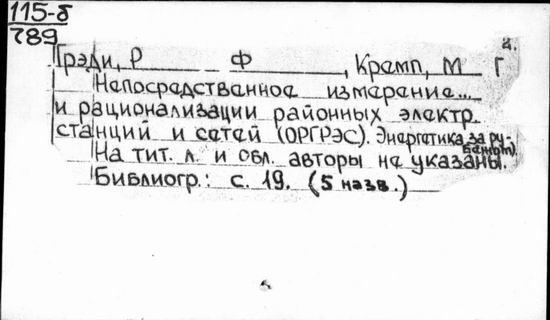 115-б
789
2.
Грэди, Р Ф , Крамп, М Г
Непосредственное измерение...
и рационализации районных электр.
станций и сетей (ОРГРЭС). Энергетика за ру-
бежом).
На тит. л. и обл. авторы не указаны.
Библиогр.: с. 19. (5 назв.)